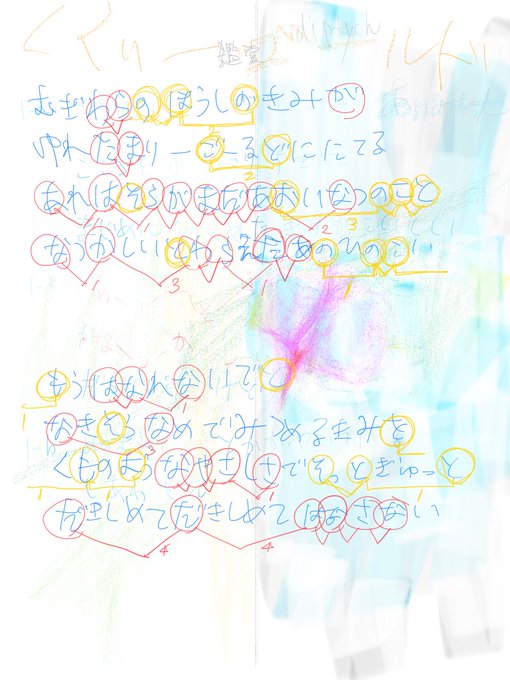 diptych
鑑賞
むぎわらのぼうしのきみが
ゆれたまりーごーるどににてる
あれはそらがまだあおいなつのこと
なつかしいとわらえたあのひのこい
もうはなれないでと
なきそうなめでみつめるきみを
くものようなやさしさでそっとぎゅっと
だきしめてだきしめてはなさない